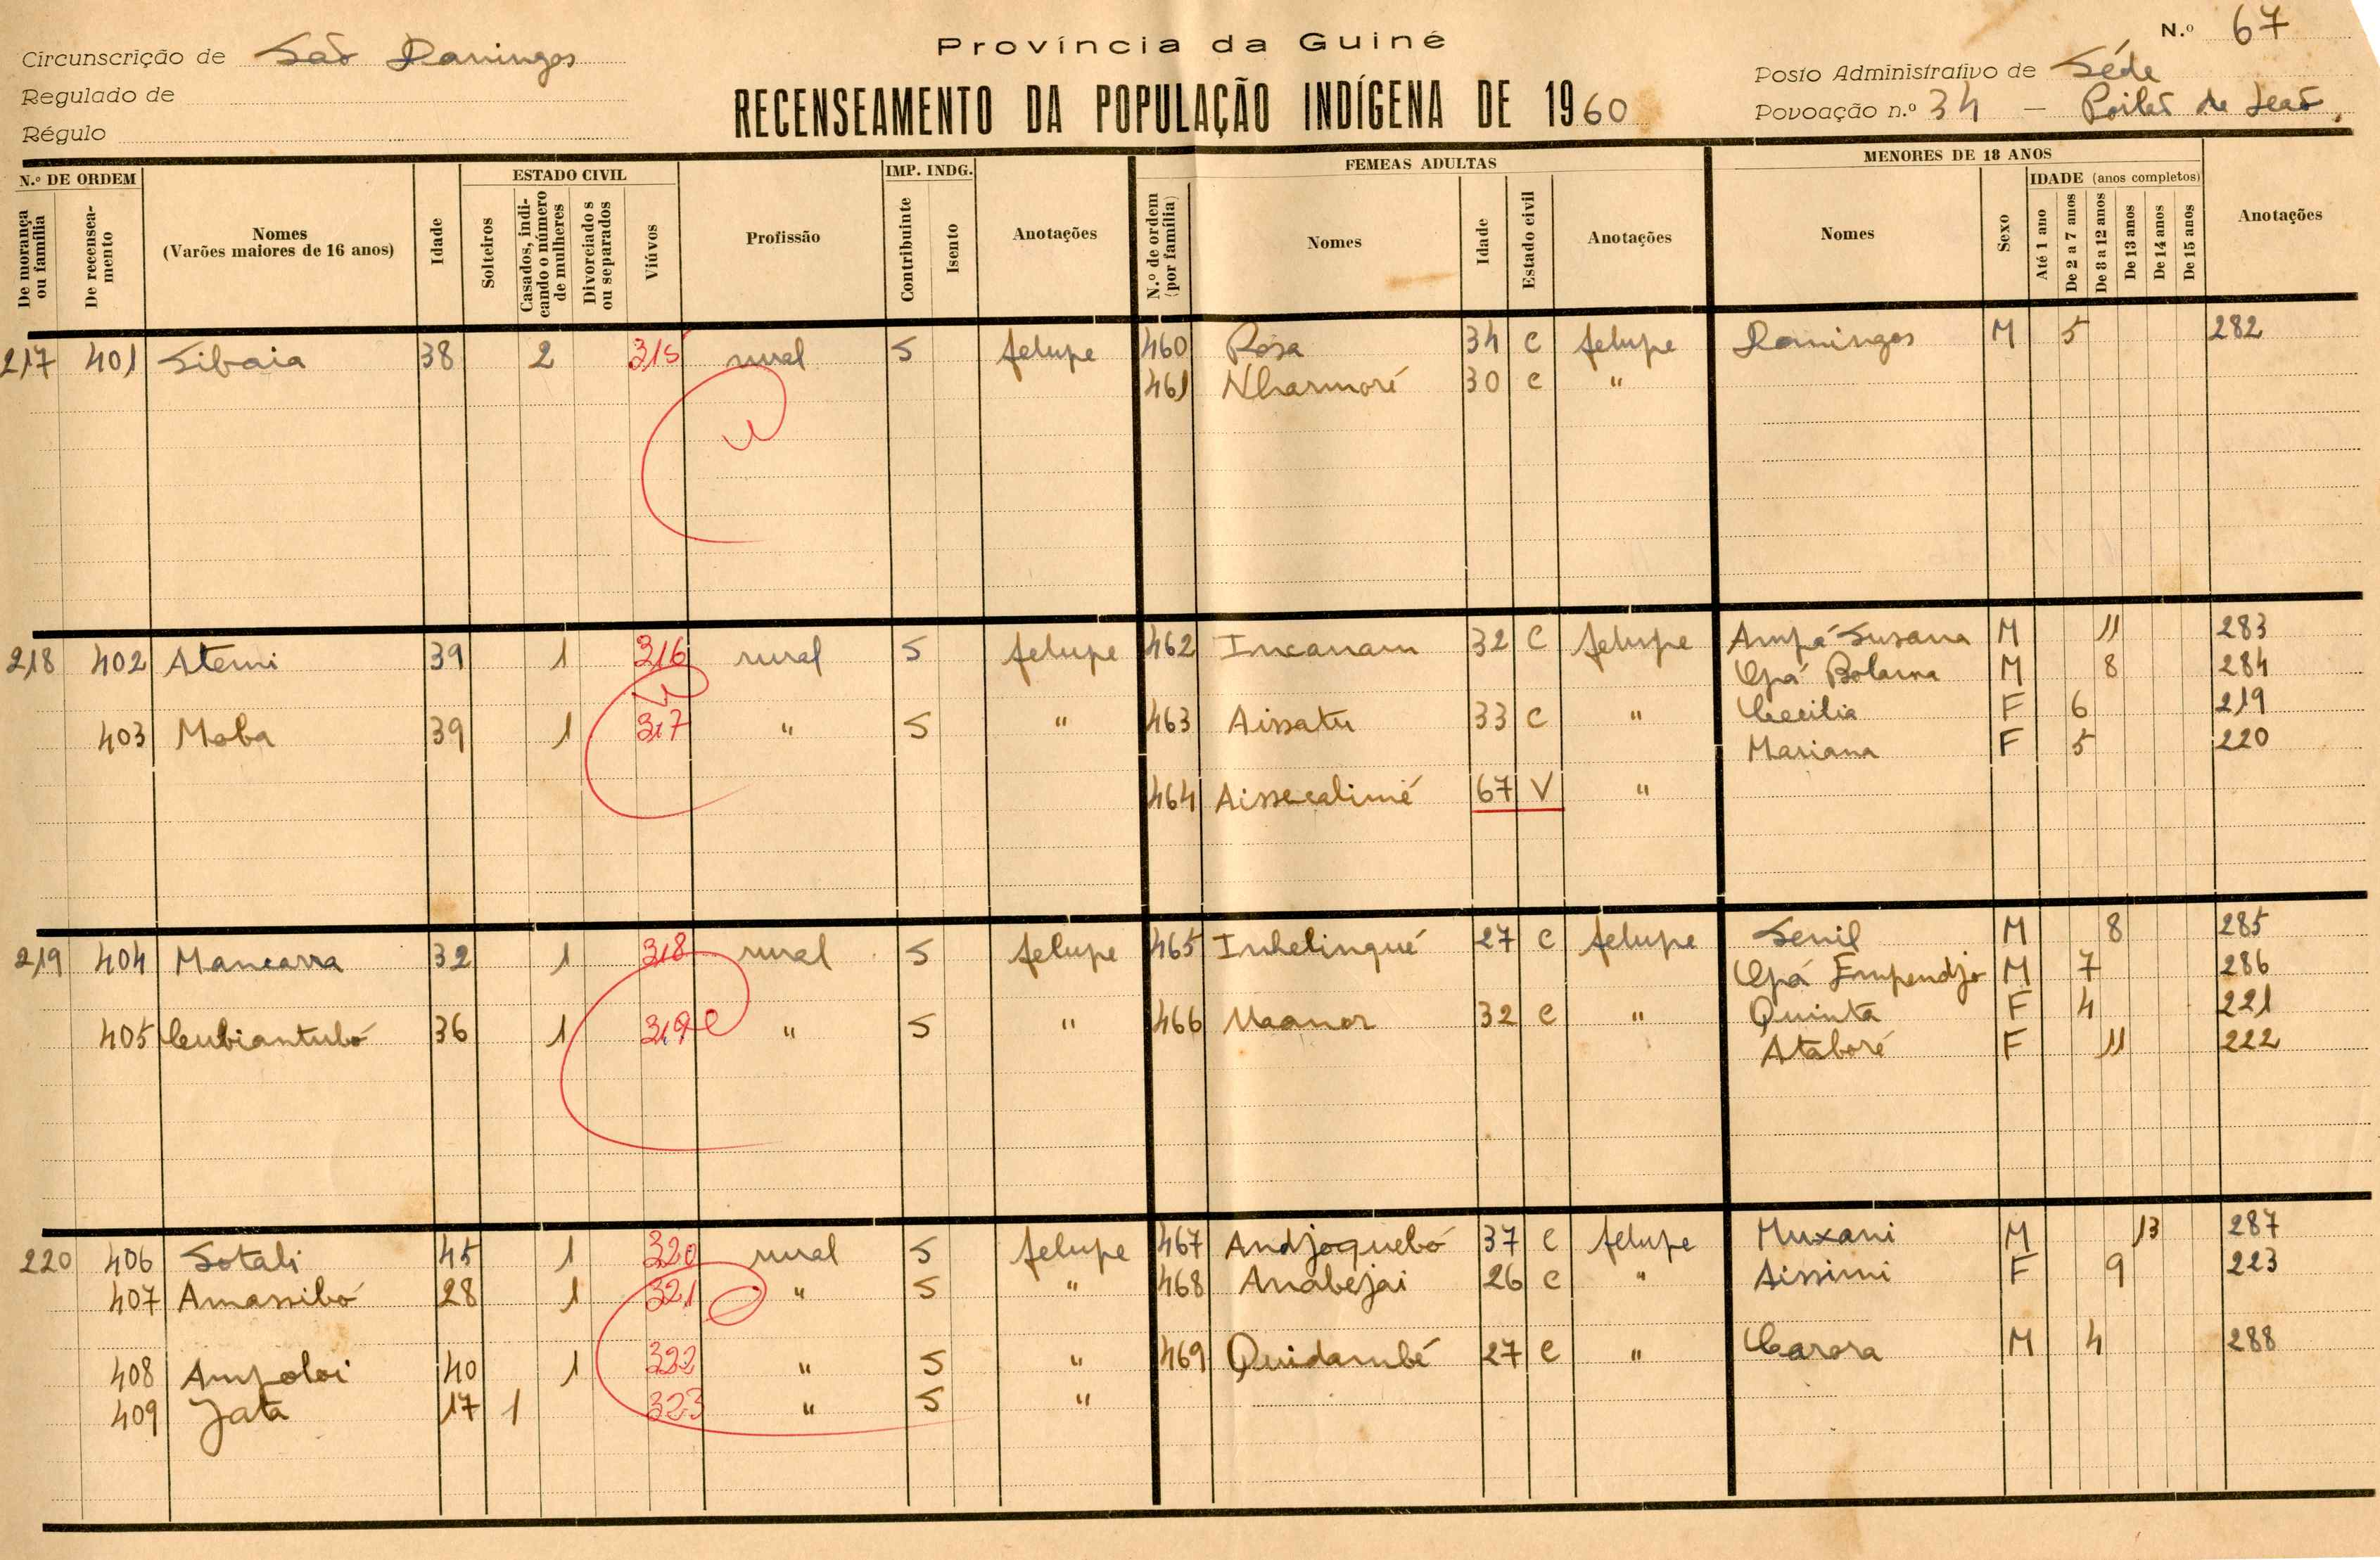 Província da Guiné
N.º 67
Circunscrição de São Domingos
Posto Administrativo de Séde
Regulado de
RECENSEAMENTO DA POPULAÇÃO INDÍGENA DE 1960
Povoação n.º 34 — de
Régulo
N.º DE ORDEM
De morança ou família
De recenseamento
Nomes
(Varões maiores de 16 anos)
Idade
ESTADO CIVIL
Solteiros
Casados, indicando o número de mulheres
Divorciados ou separados
Viúvos
Profissão
IMP. INDG.
Contribuinte
Isento
Anotações
FEMEAS ADULTAS
N.º de ordem (por família)
Nomes
Idade
Estado civil
Anotações
MENORES DE 18 ANOS
Nomes
Sexo
IDADE (anos completos)
Até 1 ano
De 2 a 7 anos
De 8 a 12 anos
De 13 anos
De 14 anos
De 15 anos
Anotações
217 401 Sibaia 38 2 315 rural S felupe 460 Rosa 34 C felupe Domingos M 5 282
461 Nharmoré 30 C "
218 402 Atemi 39 1 316 rural S felupe 462 Incanam 32 C felupe Ampá Susana M 11 283
Opá Bolama M 8 284
403 Moba 39 1 317 " S " 463 Aissatu 33 C " Cecilia F 6 219
Mariana F 5 220
464 Aissecalimé 67 V "
219 404 Mancarra 32 1 318 rural S felupe 465 Inhelinqué 27 C felupe Senil M 8 285
Opá Empendjo M 7 286
405 Cubiantubó 36 1 319 " S " 466 Maanor 32 C " Quinta F 4 221
Ataboré F 11 222
220 406 Sotali 45 1 320 rural S felupe 467 Andjoquebó 37 C felupe Muxani M 13 287
407 Amassibó 28 1 321 " S " 468 Anabejai 26 C " Aissimi F 9 223
408 Ampoloi 40 1 322 " S " 469 Quidambé 27 C " Carora M 4 288
409 Jata 17 1 323 " S "